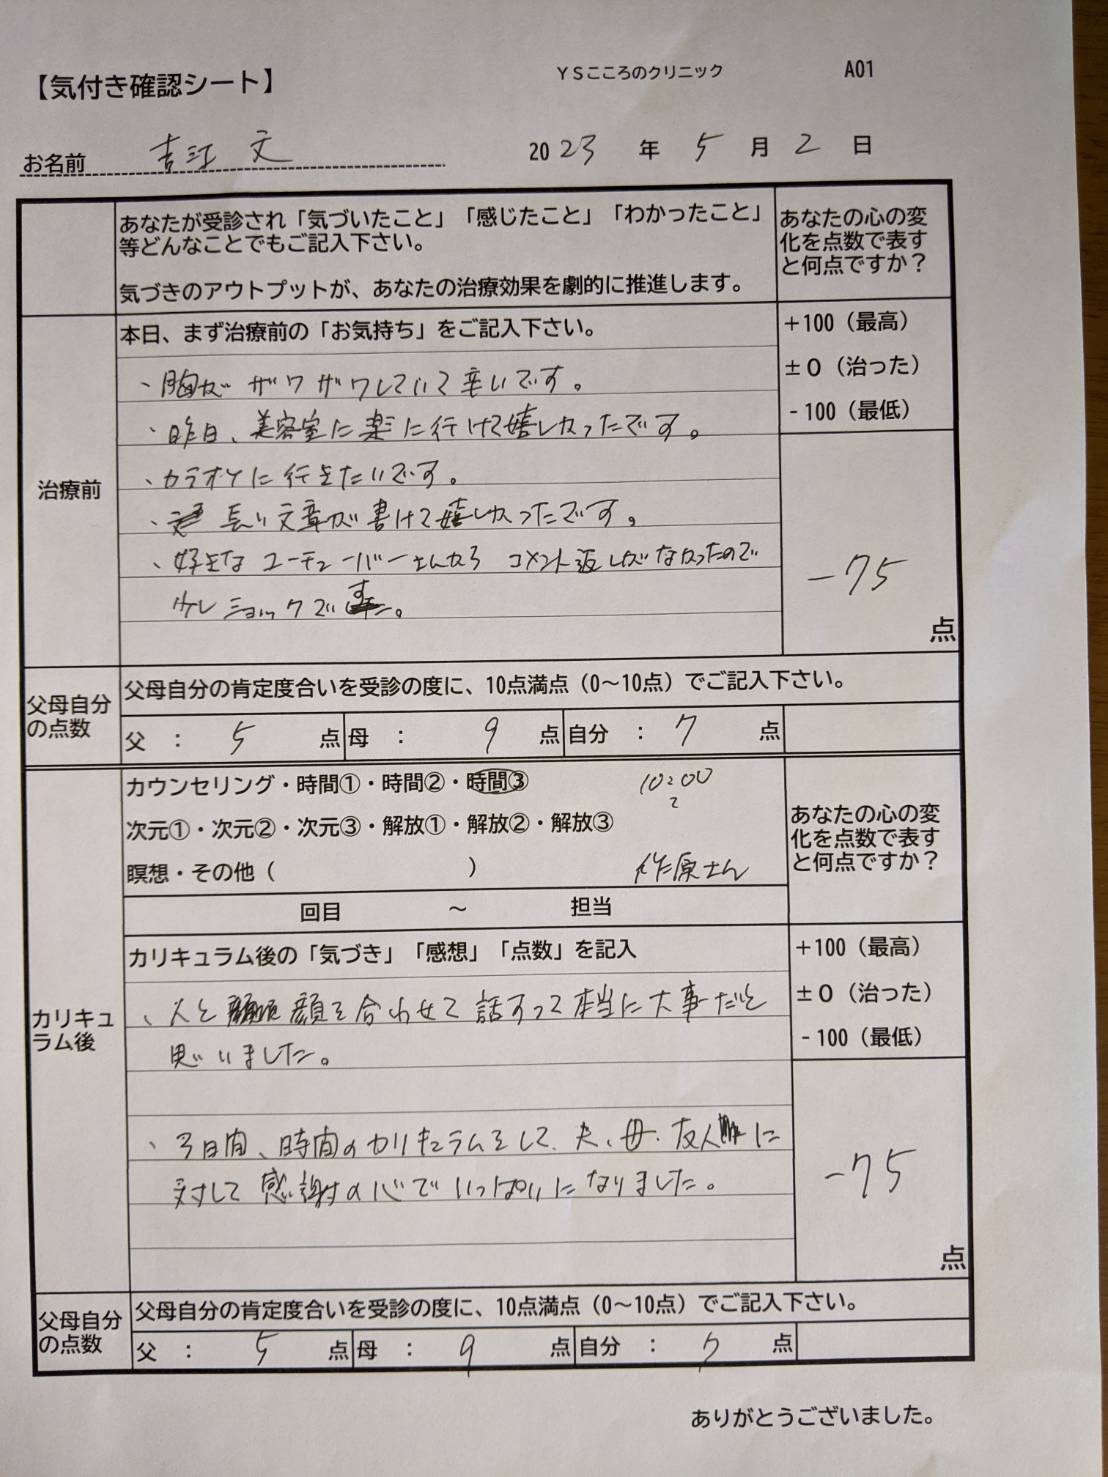 【気付き確認シート】 ＹＳこころのクリニック A01
お名前 吉江 文 2023 年 5 月 2 日
あなたが受診され「気づいたこと」「感じたこと」「わかったこと」
等どんなことでもご記入下さい。
気づきのアウトプットが、あなたの治療効果を劇的に推進します。
あなたの心の変
化を点数で表す
と何点ですか？
治療前
本日、まず治療前の「お気持ち」をご記入下さい。
、胸がザワザワしていて辛いです。
、昨日、美容室に楽に行けて嬉しかったです。
、カラオケに行きたいです。
、長い文章が書けて嬉しかったです。
、好きなユーチューバーさんから コメント返しがなかったので
少しショックです。
+100（最高）
±０（治った）
-100（最低）
-75
点
父母自分
の点数
父母自分の肯定度合いを受診の度に、10点満点（0～10点）でご記入下さい。
父 ： 5 点 母 ： 9 点 自分 ： 7 点
カリキュ
ラム後
カウンセリング・時間①・時間②・時間③ 10:00
次元①・次元②・次元③・解放①・解放②・解放③
瞑想・その他（ ） 作原さん
回目 ～ 担当
あなたの心の変
化を点数で表す
と何点ですか？
カリキュラム後の「気づき」「感想」「点数」を記入
、人と顔を合わせて話すって本当に大事だと
思いました。
、3日間、時間のカリキュラムをして、夫、母、友人に
対して感謝の心でいっぱいになりました。
+100（最高）
±０（治った）
-100（最低）
-75
点
父母自分
の点数
父母自分の肯定度合いを受診の度に、10点満点（0～10点）でご記入下さい。
父 ： 5 点 母 ： 9 点 自分 ： 7 点
ありがとうございました。